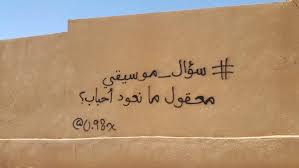 #سؤال_موسيقي
معقول ما نعود أحباب؟
@U.98x